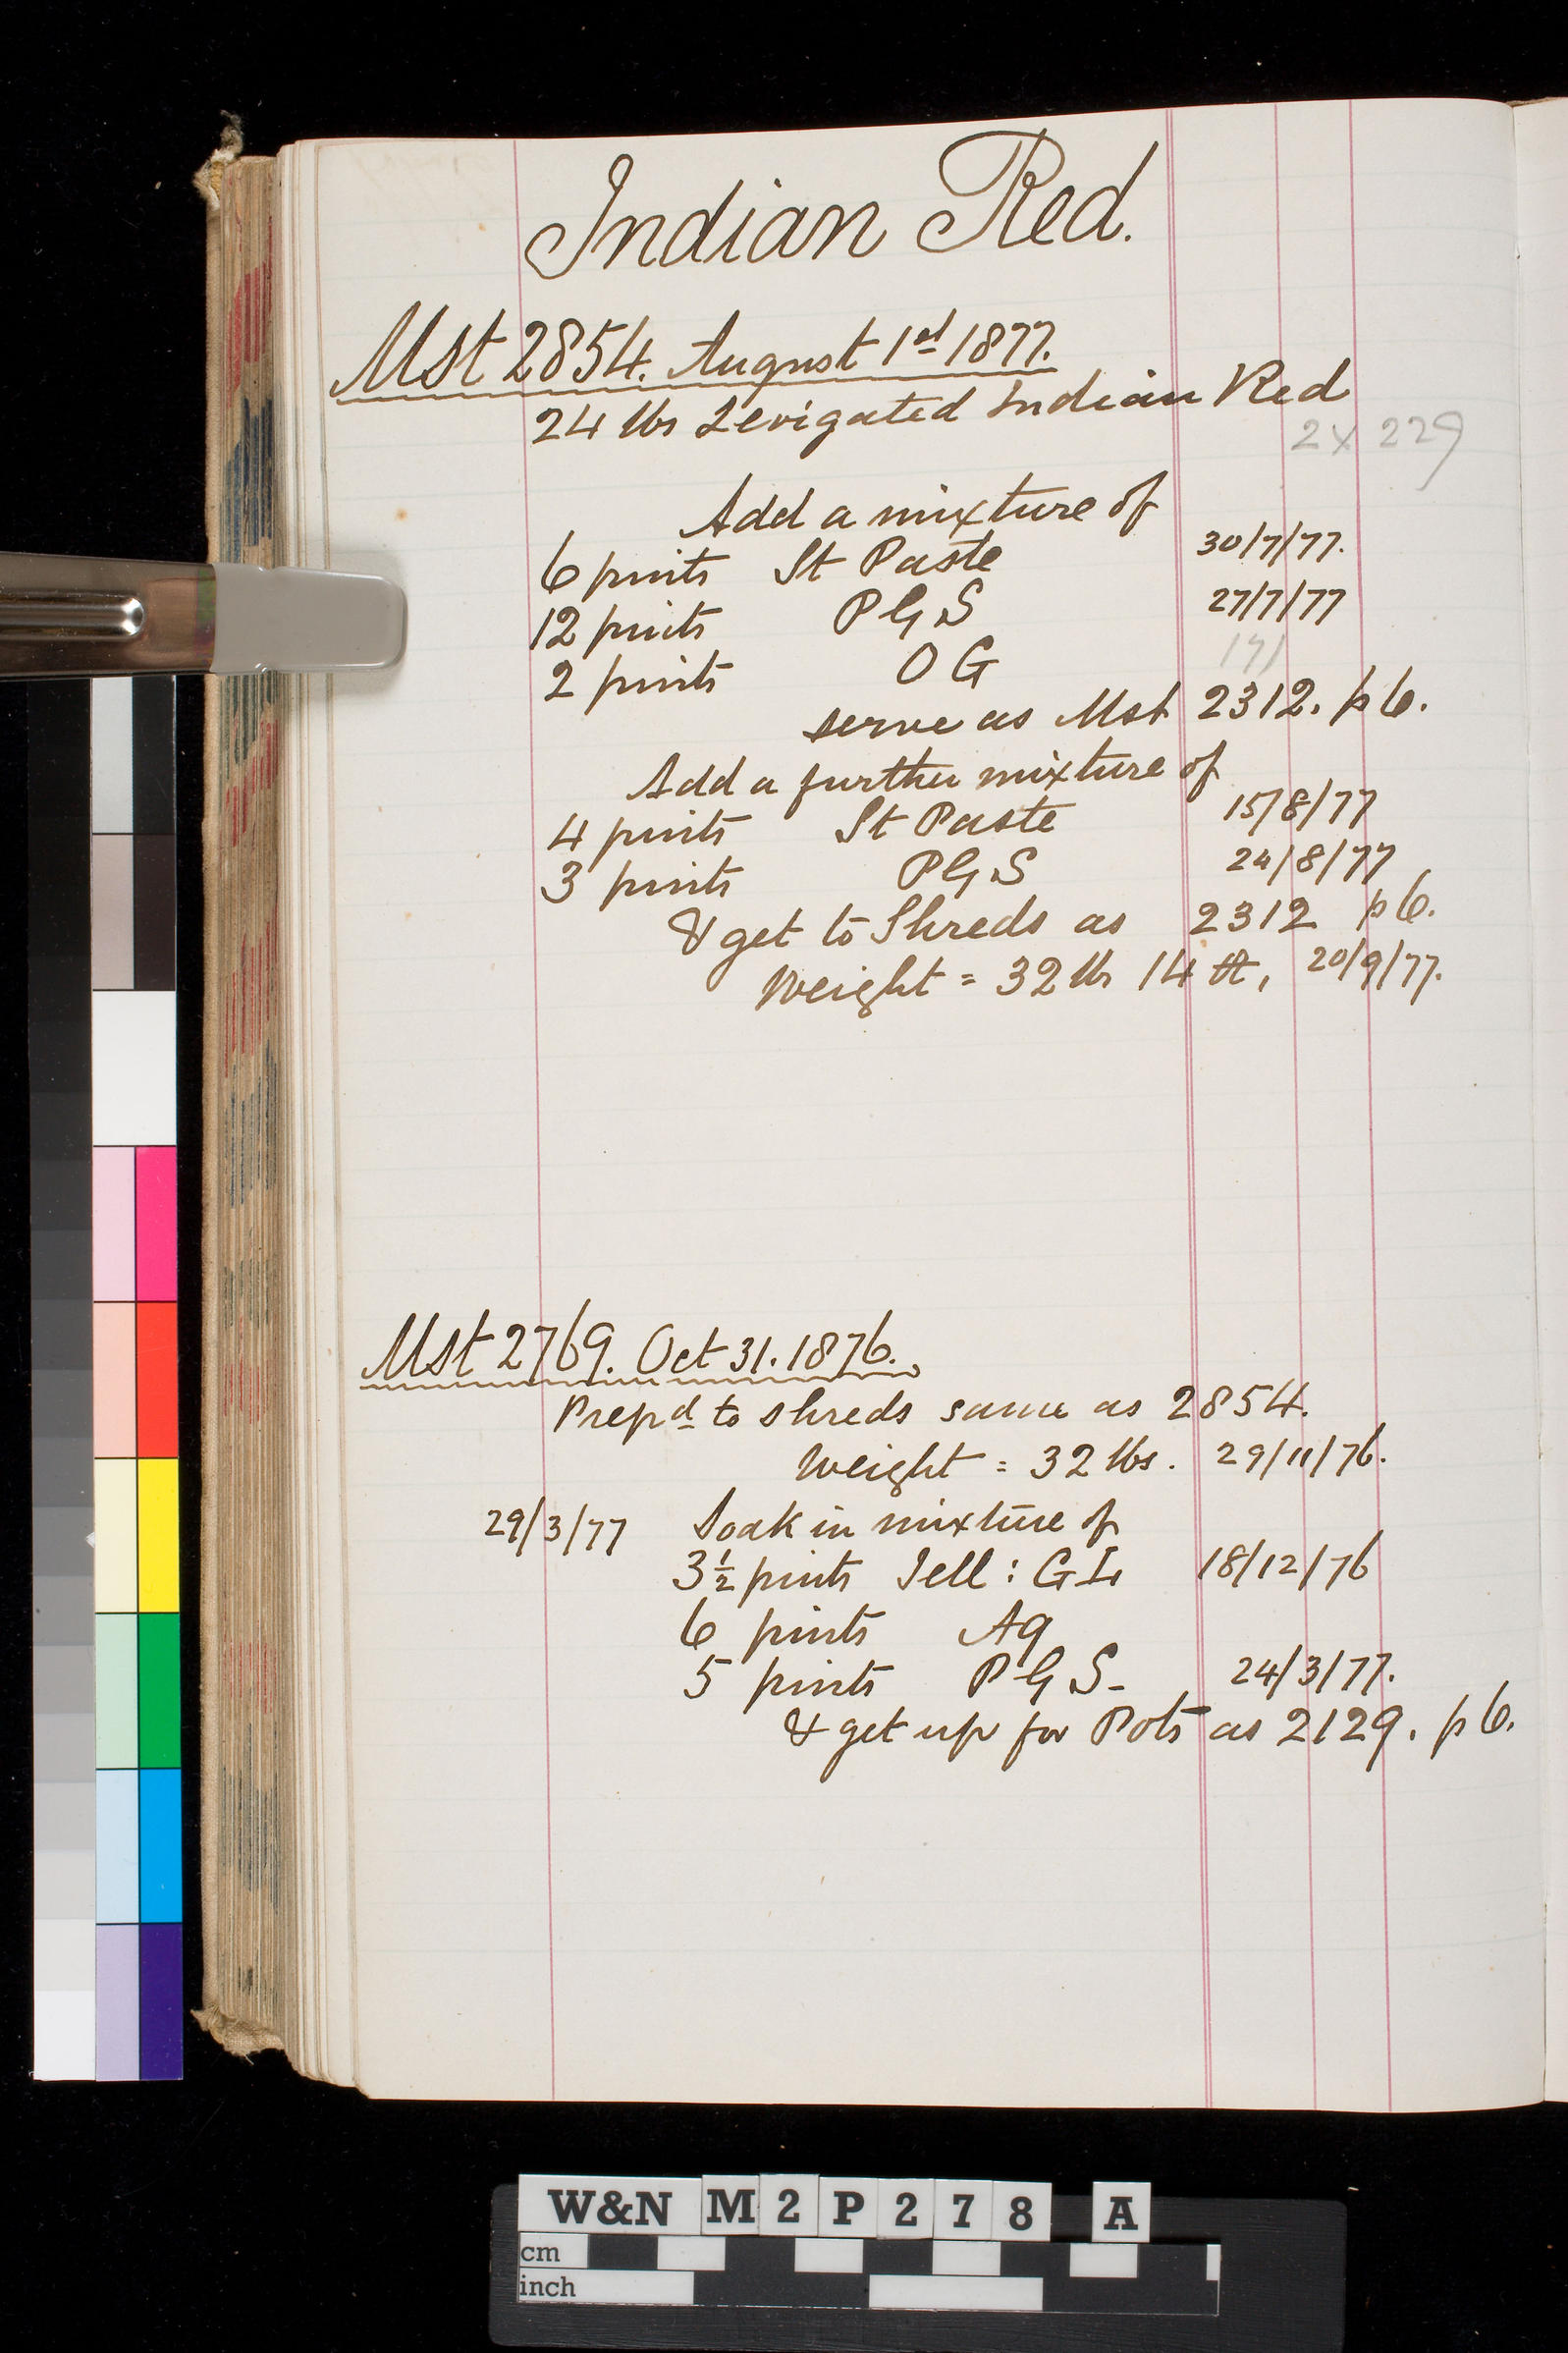 Indian Red.
Mst 2854. August 1st 1877.
24 lbs Levigated Indian Red
2 x 229
Add a mixture of
6 pints St Paste 30/7/77.
12 pints P G S 27/7/77
2 pints O G 171
serve as Mst 2312. p 6.
Add a further mixture of
4 pints St Paste 15/8/77
3 pints P G S 24/8/77
& get to Shreds as 2312 p 6.
Weight = 32 lbs 14 20/9/77.
Mst 2769. Oct 31. 1876.
Prepd to shreds same as 2854.
Weight = 32 lbs. 29/11/76.
29/3/77 Soak in mixture of
3½ pints Jell: G I 18/12/76
6 pints Aq
5 pints P G S - 24/3/77.
& get up for Pots as 2129. p 6.
W&N M 2 P 2 7 8 A
cm
inch